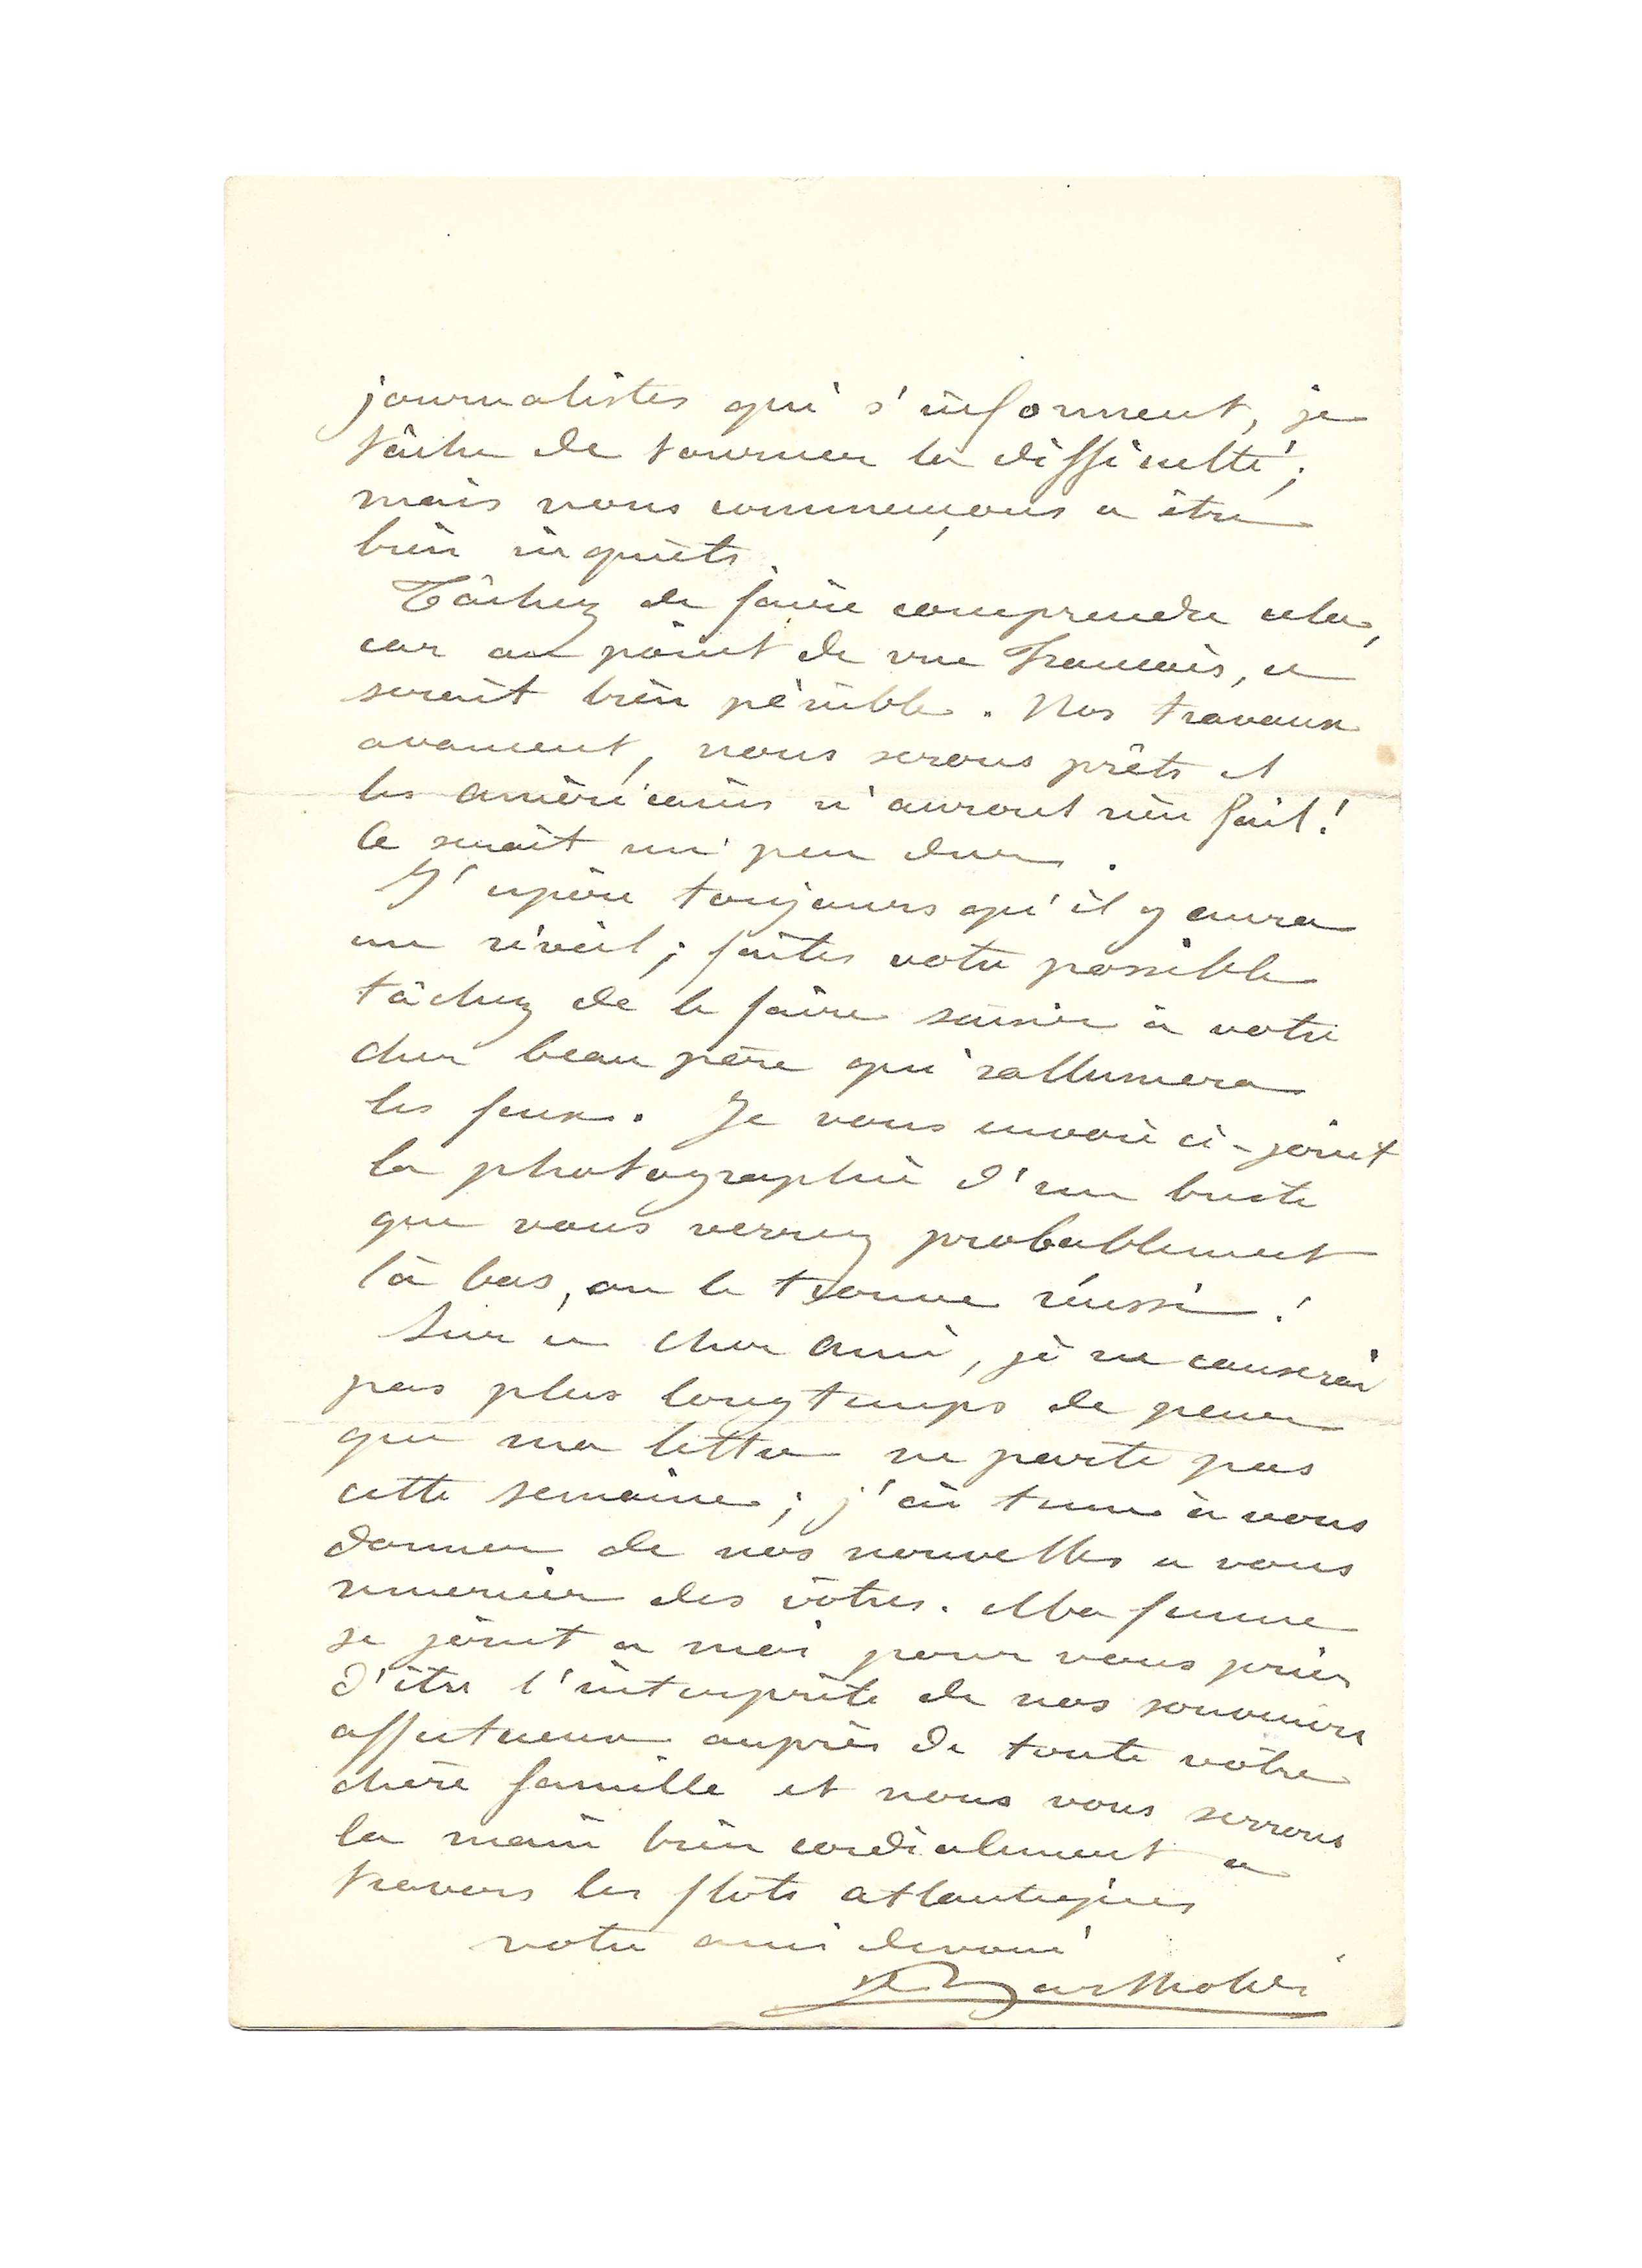 journalistes qui s'informent, je
tâche de tourner la difficulté ;
mais nous commençons a être
bien inquiets.
Tâchez de faire comprendre cela,
car au point de vue Français, ce
serait bien pénible. Nos travaux
avancent, nous serons prêts et
les américains n'auront rien fait !
Ce serait un peu dur.
J'espère toujours qu'il y aura
un réveil ; faites votre possible
tâchez de le faire saisir à votre
cher beau père qui rallumera
les feux. Je vous envoie ci-joint
la photographie d'un buste
que vous verrez probablement
là bas, on le trouve réussi !
Sur ce cher ami, je ne causerai
pas plus longtemps de peur
que ma lettre ne parte pas
cette semaine ; j'ai tenu à vous
donner de nos nouvelles a vous
remercier des vôtres. Ma femme
se joint a moi pour vous prier
d'être l'interprète de nos souvenirs
affectueux auprès de toute votre
chère famille et nous vous serrons
la main bien cordialement a
travers les flots atlantiques
votre ami devoué
Bartholdi